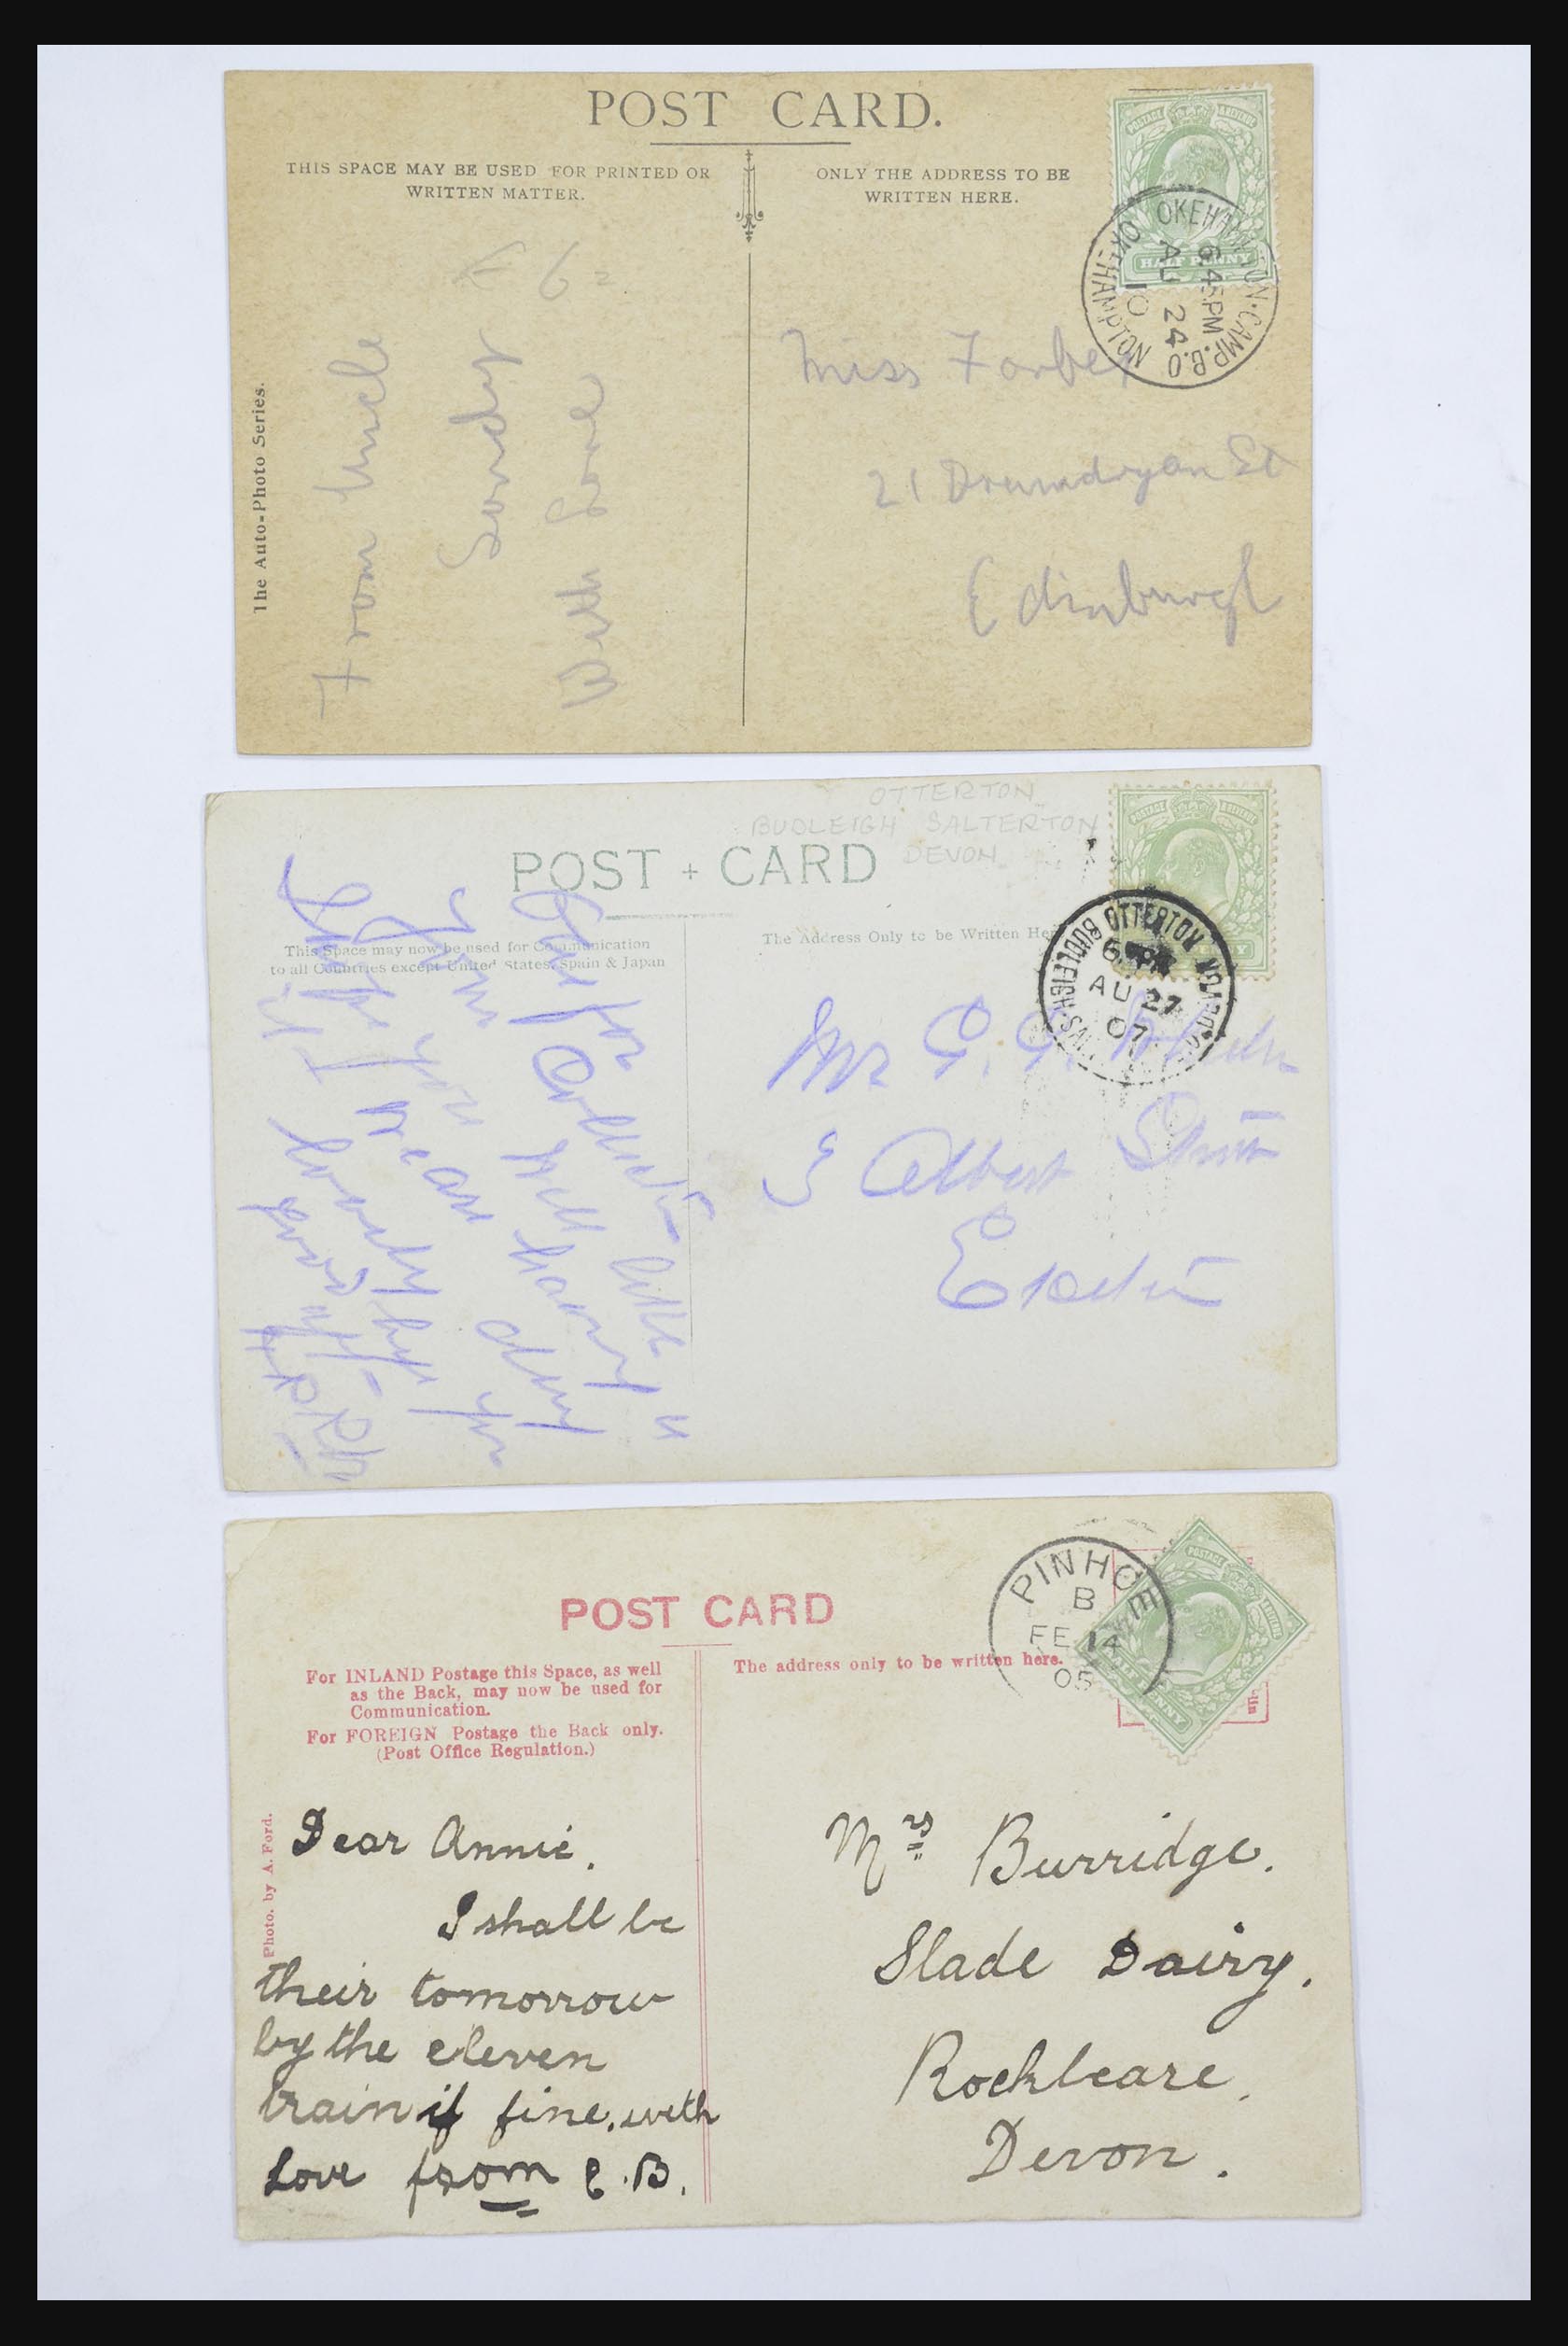 POST CARD.
THIS SPACE MAY BE USED FOR PRINTED OR
WRITTEN MATTER.
ONLY THE ADDRESS TO BE
WRITTEN HERE.
The Auto-Photo Series.
POSTAGE REVENUE
HALF PENNY
OKEHAMPTON·CAMP.B.O
OKEHAMPTON
6 45PM
AU 24
10
From Uncle
Sandy
With Love
Miss Forbes
21 Drumdryan St
Edinburgh
OTTERTON
BUDLEIGH SALTERTON
DEVON
POST + CARD
This Space may now be used for Communication
to all Countries except United States, Spain & Japan
The Address Only to be Written Here
POSTAGE REVENUE
OTTERTON
BUDLEIGH
AU 27
07
for Collection little
Hope you
hear
Mr G. G.
3 Albert Street
Exeter
POST CARD
For INLAND Postage this Space, as well
as the Back, may now be used for
Communication.
For FOREIGN Postage the Back only.
(Post Office Regulation.)
The address only to be written here.
Photo. by A. Ford.
POSTAGE REVENUE
HALF PENNY
PINHOE
B
FE 14
05
Dear Annie.
I shall be
their tomorrow
by the eleven
train if fine. with
Love from E.B.
Mrs Burridge.
Slade Dairy.
Rockbeare.
Devon.